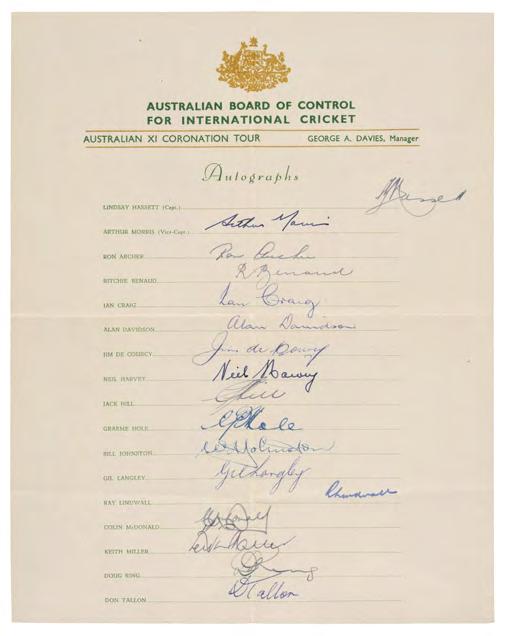 AUSTRALIAN BOARD OF CONTROL
FOR INTERNATIONAL CRICKET
AUSTRALIAN XI CORONATION TOUR GEORGE A. DAVIES, Manager
Autographs
LINDSAY HASSETT (Capt.)
ARTHUR MORRIS (Vice-Capt.) Arthur Morris
RON ARCHER Ron Archer
RITCHIE BENAUD R Benaud
IAN CRAIG Ian Craig
ALAN DAVIDSON Alan Davidson
JIM DE COURCY Jim de Courcy
NEIL HARVEY Neil Harvey
JACK HILL JHill
GRAEME HOLE GBHole
BILL JOHNSTON WAJohnston
GIL LANGLEY Gil Langley
RAY LINDWALL RLindwall
COLIN McDONALD
KEITH MILLER Keith Miller
DOUG RING DRing
DON TALLON DTallon